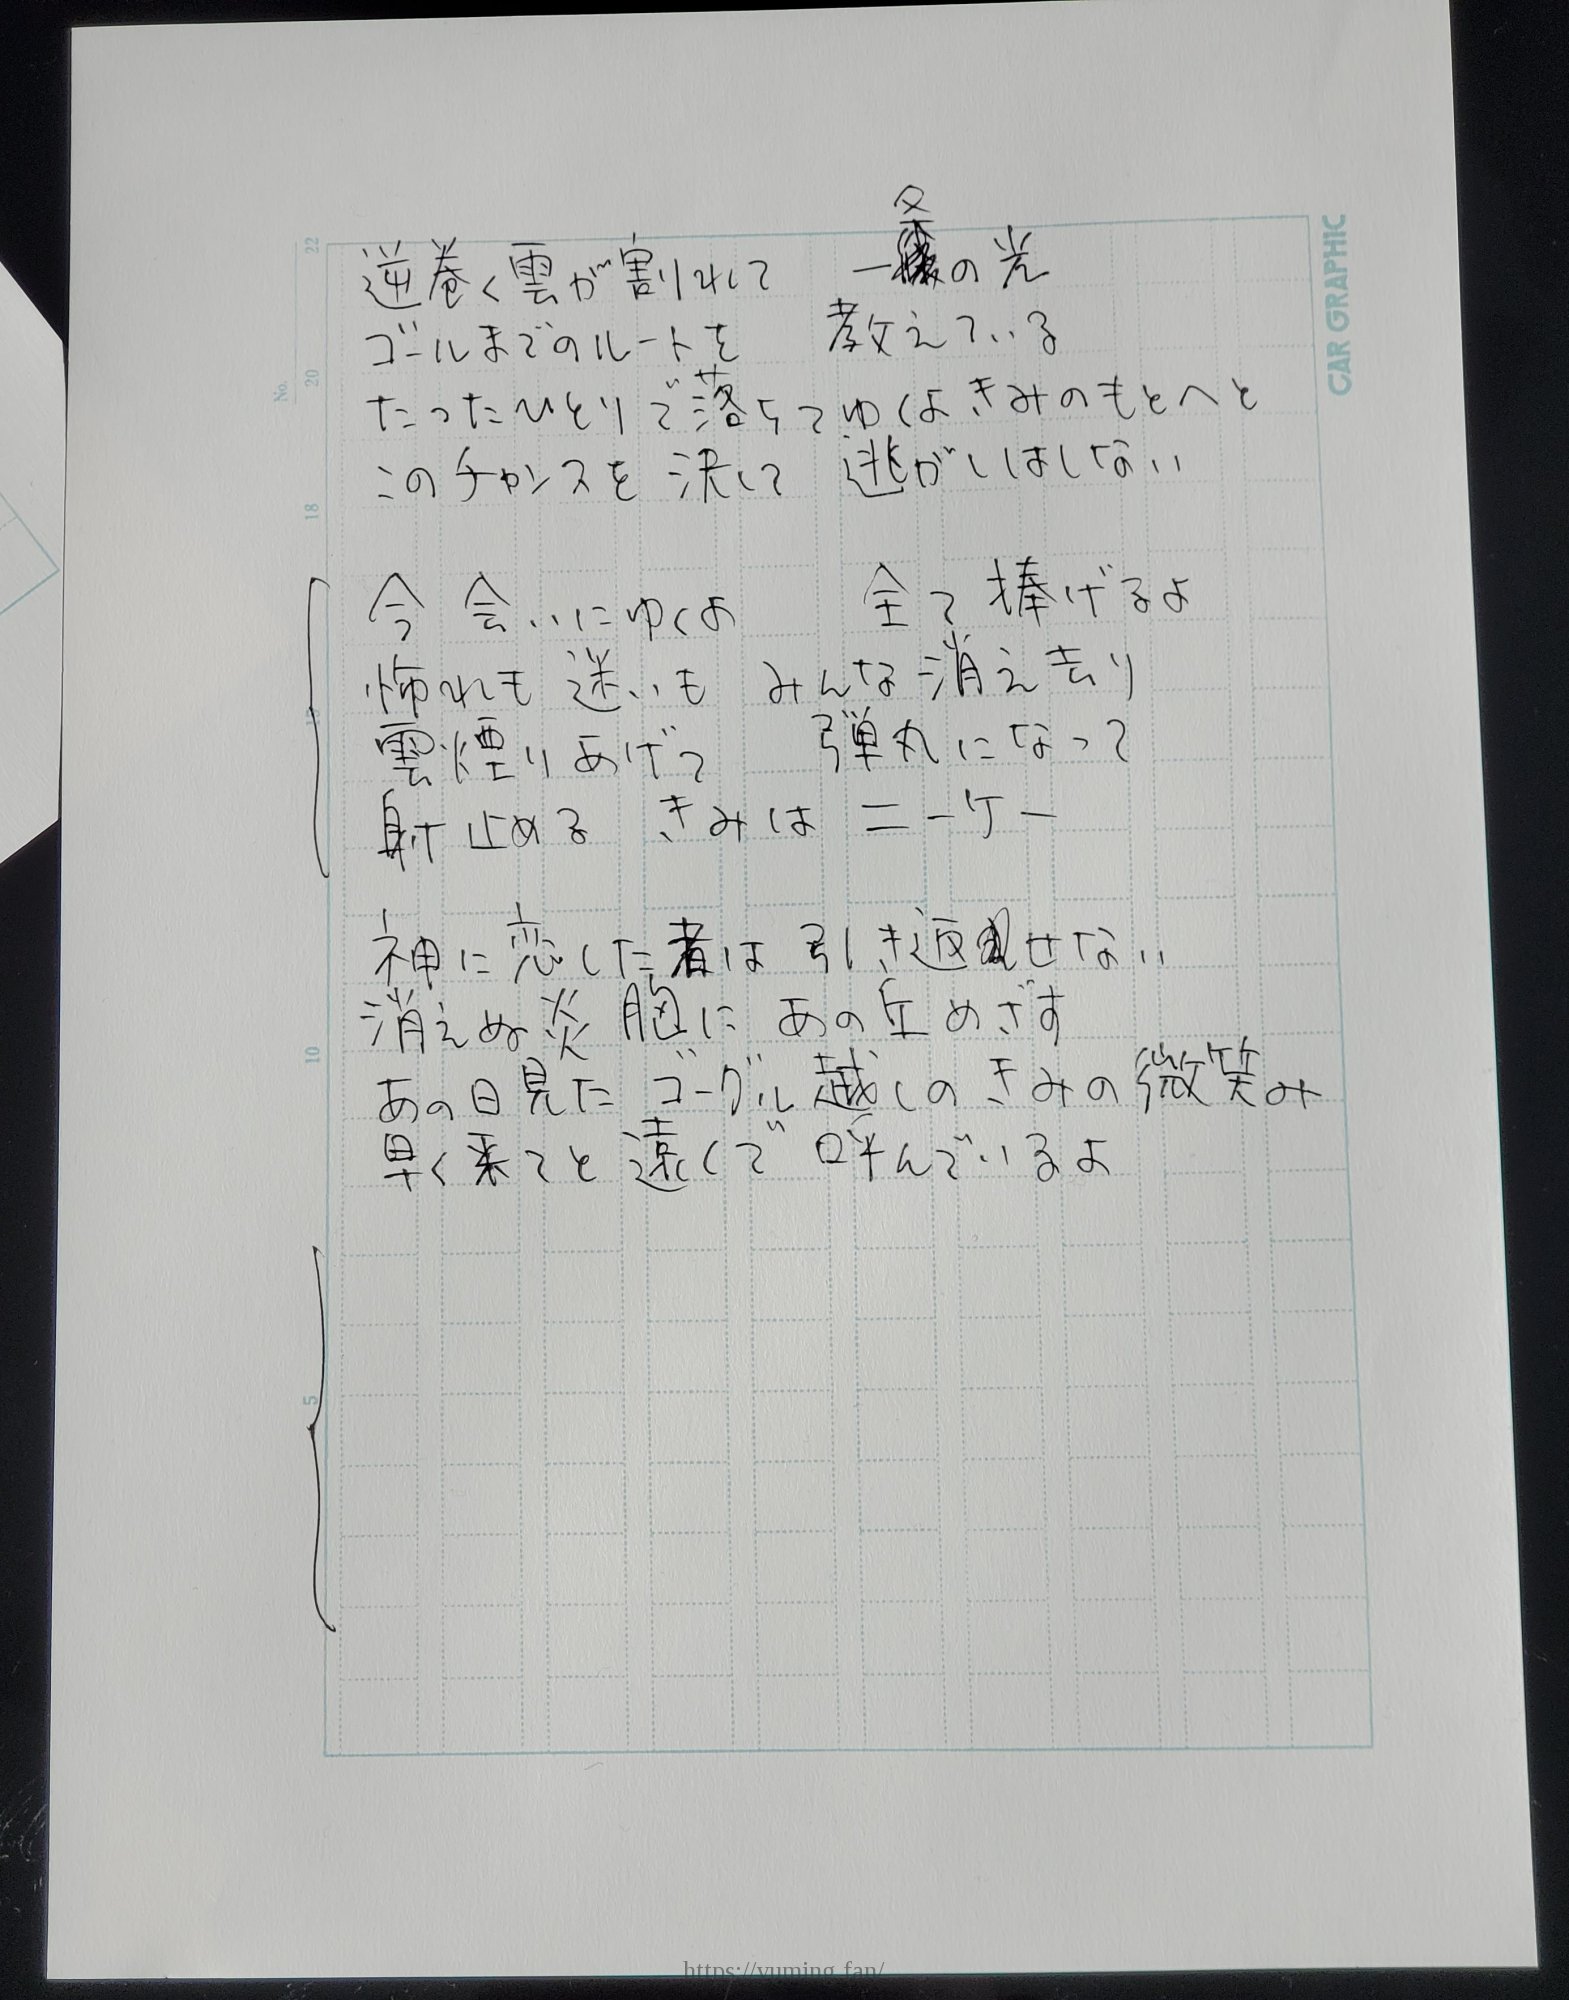 逆巻く雲が割れて 一条の光
ゴールまでのルートを 教えている
たったひとりで落ちてゆくよ きみのもとへと
このチャンスを 決して 逃がしはしない
今 会いにゆくよ 全て 捧げるよ
怖れも 迷いも みんな 消え去り
雲煙りあげて 弾丸になって
射止める きみは ニーケー
神に恋した者は 引き返せない
消えぬ炎 胸に あの丘めざす
あの日見た ゴーグル越しの きみの微笑み
早く来てと遠くで 呼んでいるよ
CAR GRAPHIC
No.
22
20
18
10
5
https://yuming.fan/